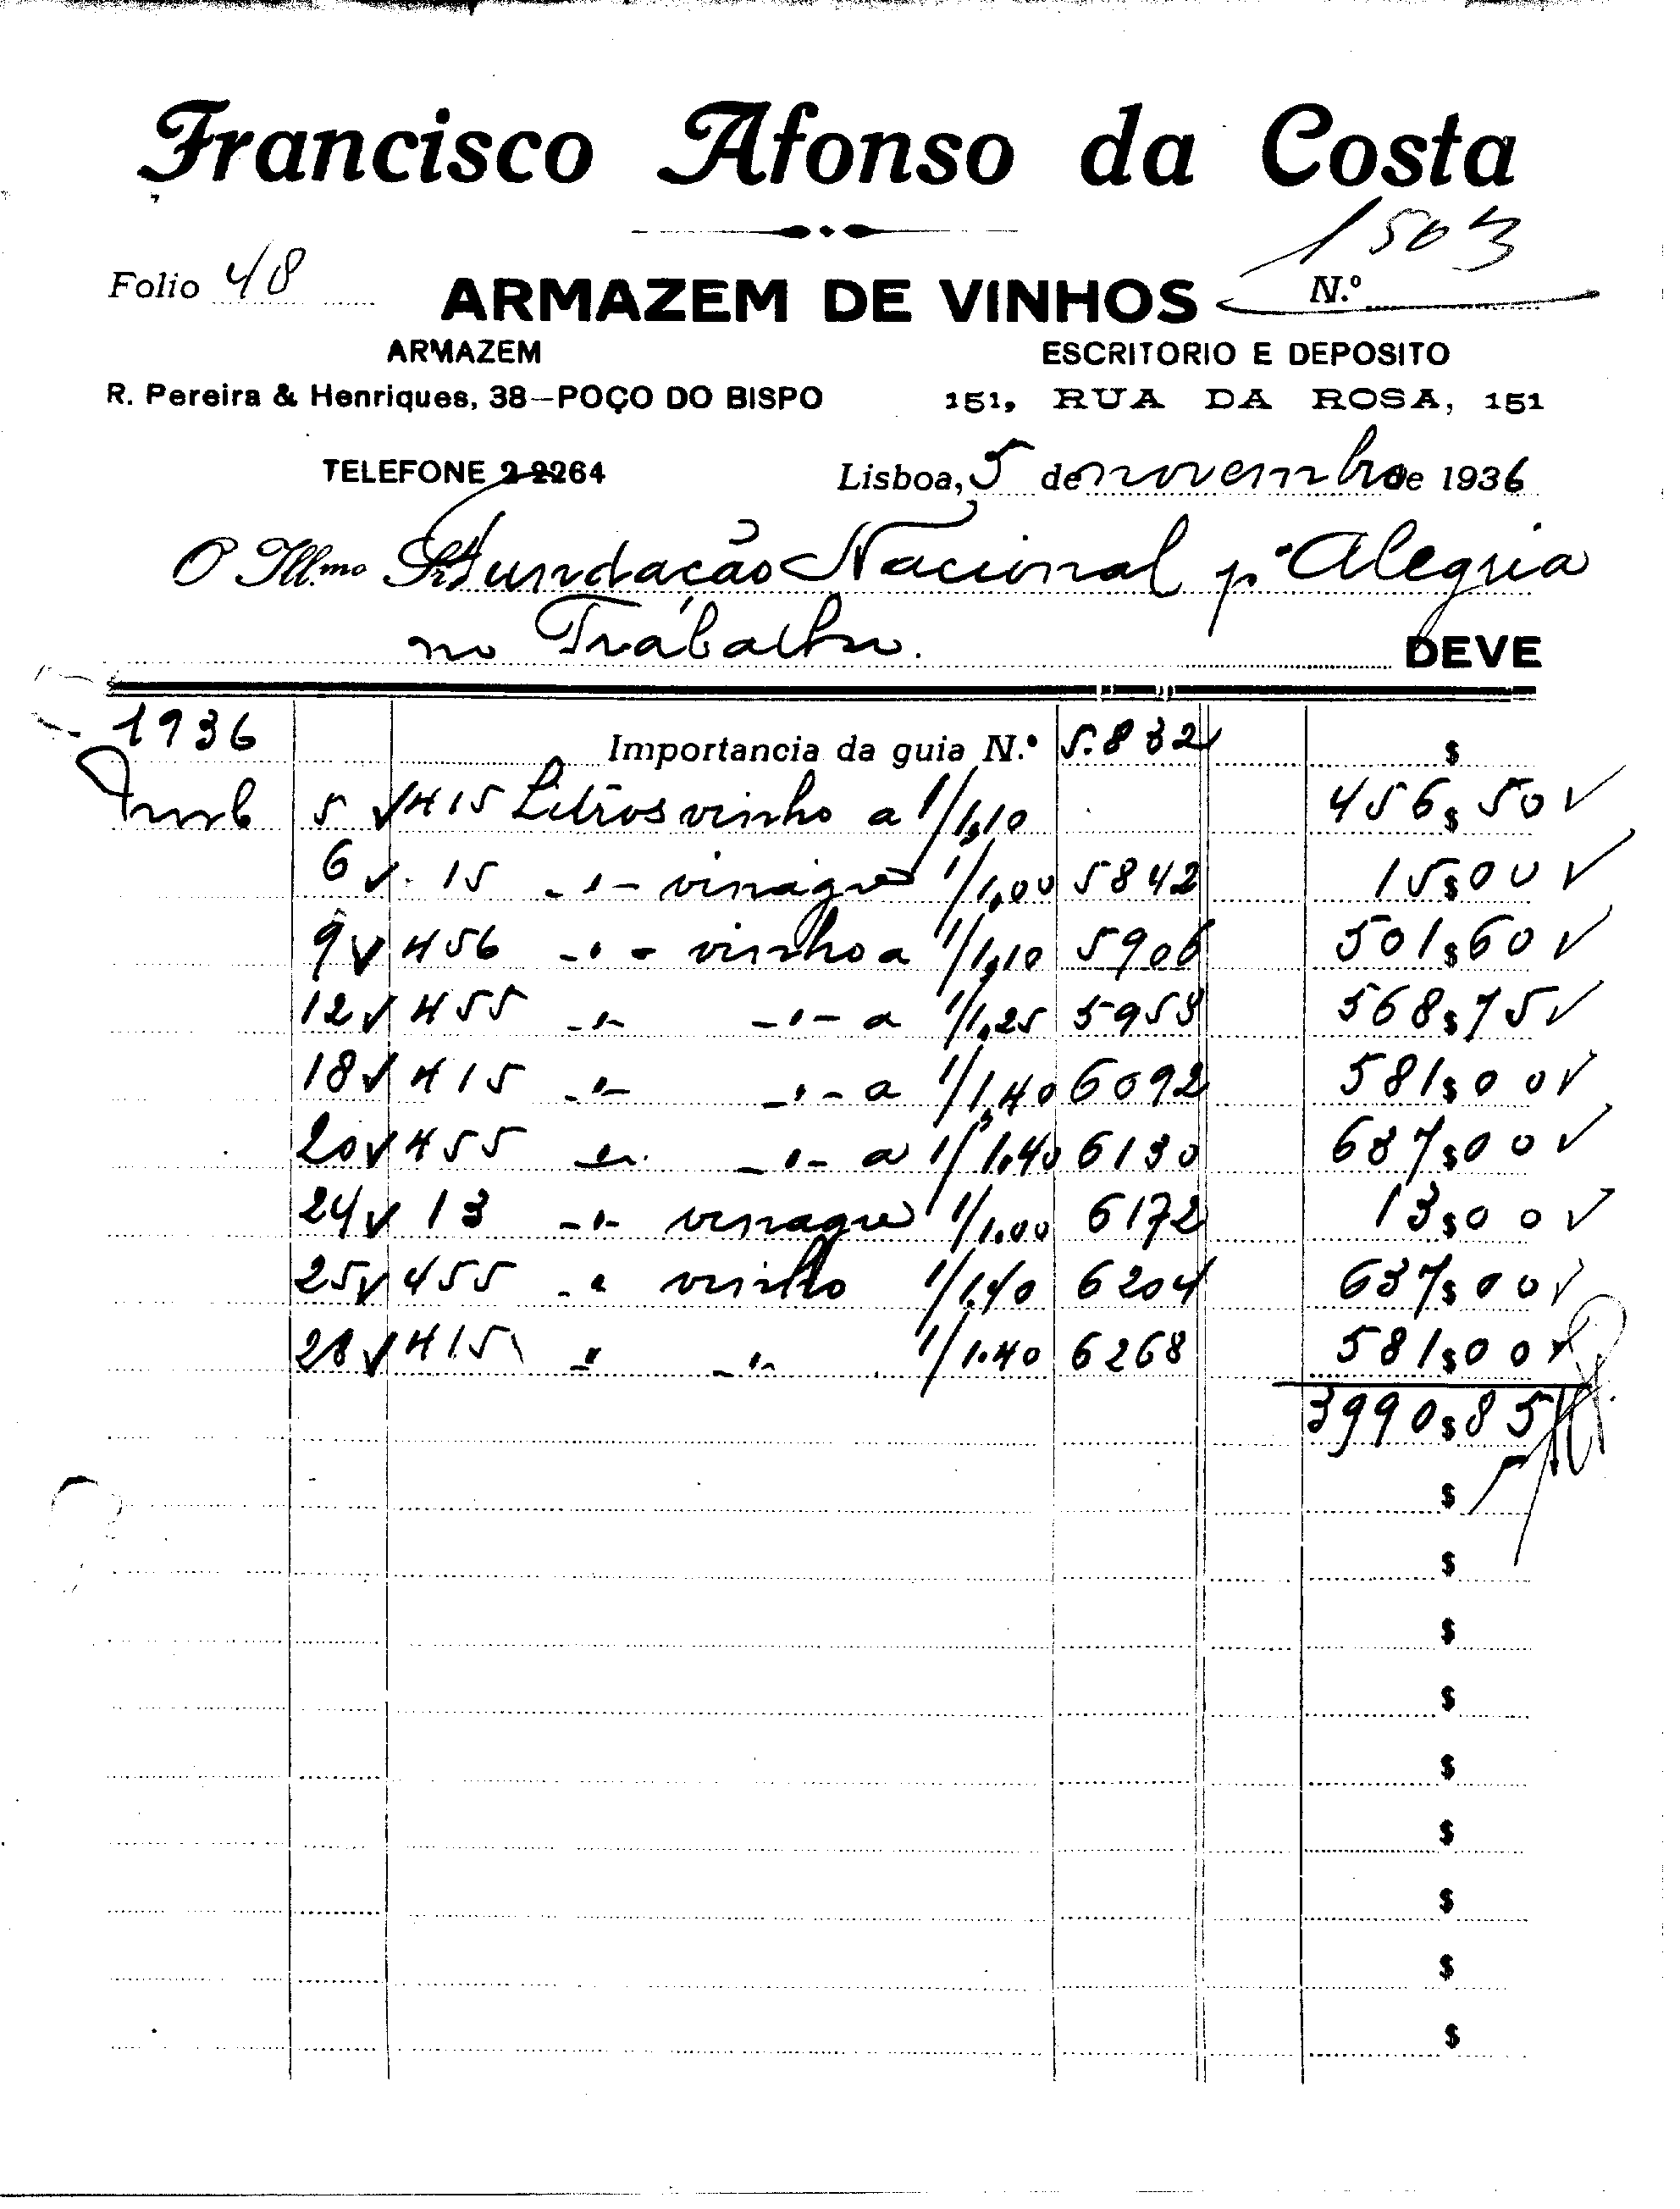 Francisco Afonso da Costa
1503
Folio 48 ARMAZEM DE VINHOS N.º
ARMAZEM ESCRITORIO E DEPOSITO
R. Pereira & Henriques, 38-POÇO DO BISPO 151, RUA DA ROSA, 151
TELEFONE 2 2264 Lisboa, 5 de novembro de 1936
O Ill.mo Sr. Fundação Nacional pª Alegria
no Trabalho. DEVE
1936 Importancia da guia N.º 5.832 $
5 415 Litros vinho a 1/1,10 456$50
6 15 -"- vinagre 1/1,00 5842 15$00
9 456 -"- vinho a 1/1,10 5906 501$60
12 455 -"- -"- a 1/1,25 5953 568$75
18 415 -"- -"- a 1/1,40 6092 581$00
20 455 -"- -"- a 1/1,40 6130 637$00
24 13 -"- vinagre 1/1.00 6172 13$00
25 455 -"- vinho 1/1.40 6204 637$00
28 415 " -"- 1/1.40 6268 581$00
3990$85
$
$
$
$
$
$
$
$
$